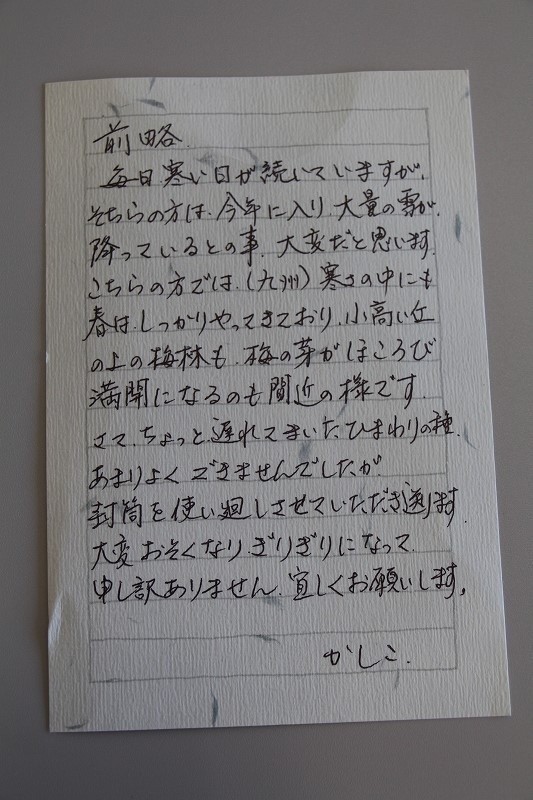 前略
毎日寒い日が続いていますが、
そちらの方は、今年に入り、大量の雪が、
降っているとの事、大変だと思います。
こちらの方では、(九州) 寒さの中にも
春は、しっかりやってきており、小高い丘
の上の梅林も、梅の芽がほころび
満開になるのも間近の様です。
さて、ちょっと遅れてまいた、ひまわりの種、
あまりよくできませんでしたが
封筒を使い廻しさせていただき送ります。
大変おそくなり、ぎりぎりになって、
申し訳ありません。宜しくお願いします。
かしこ.